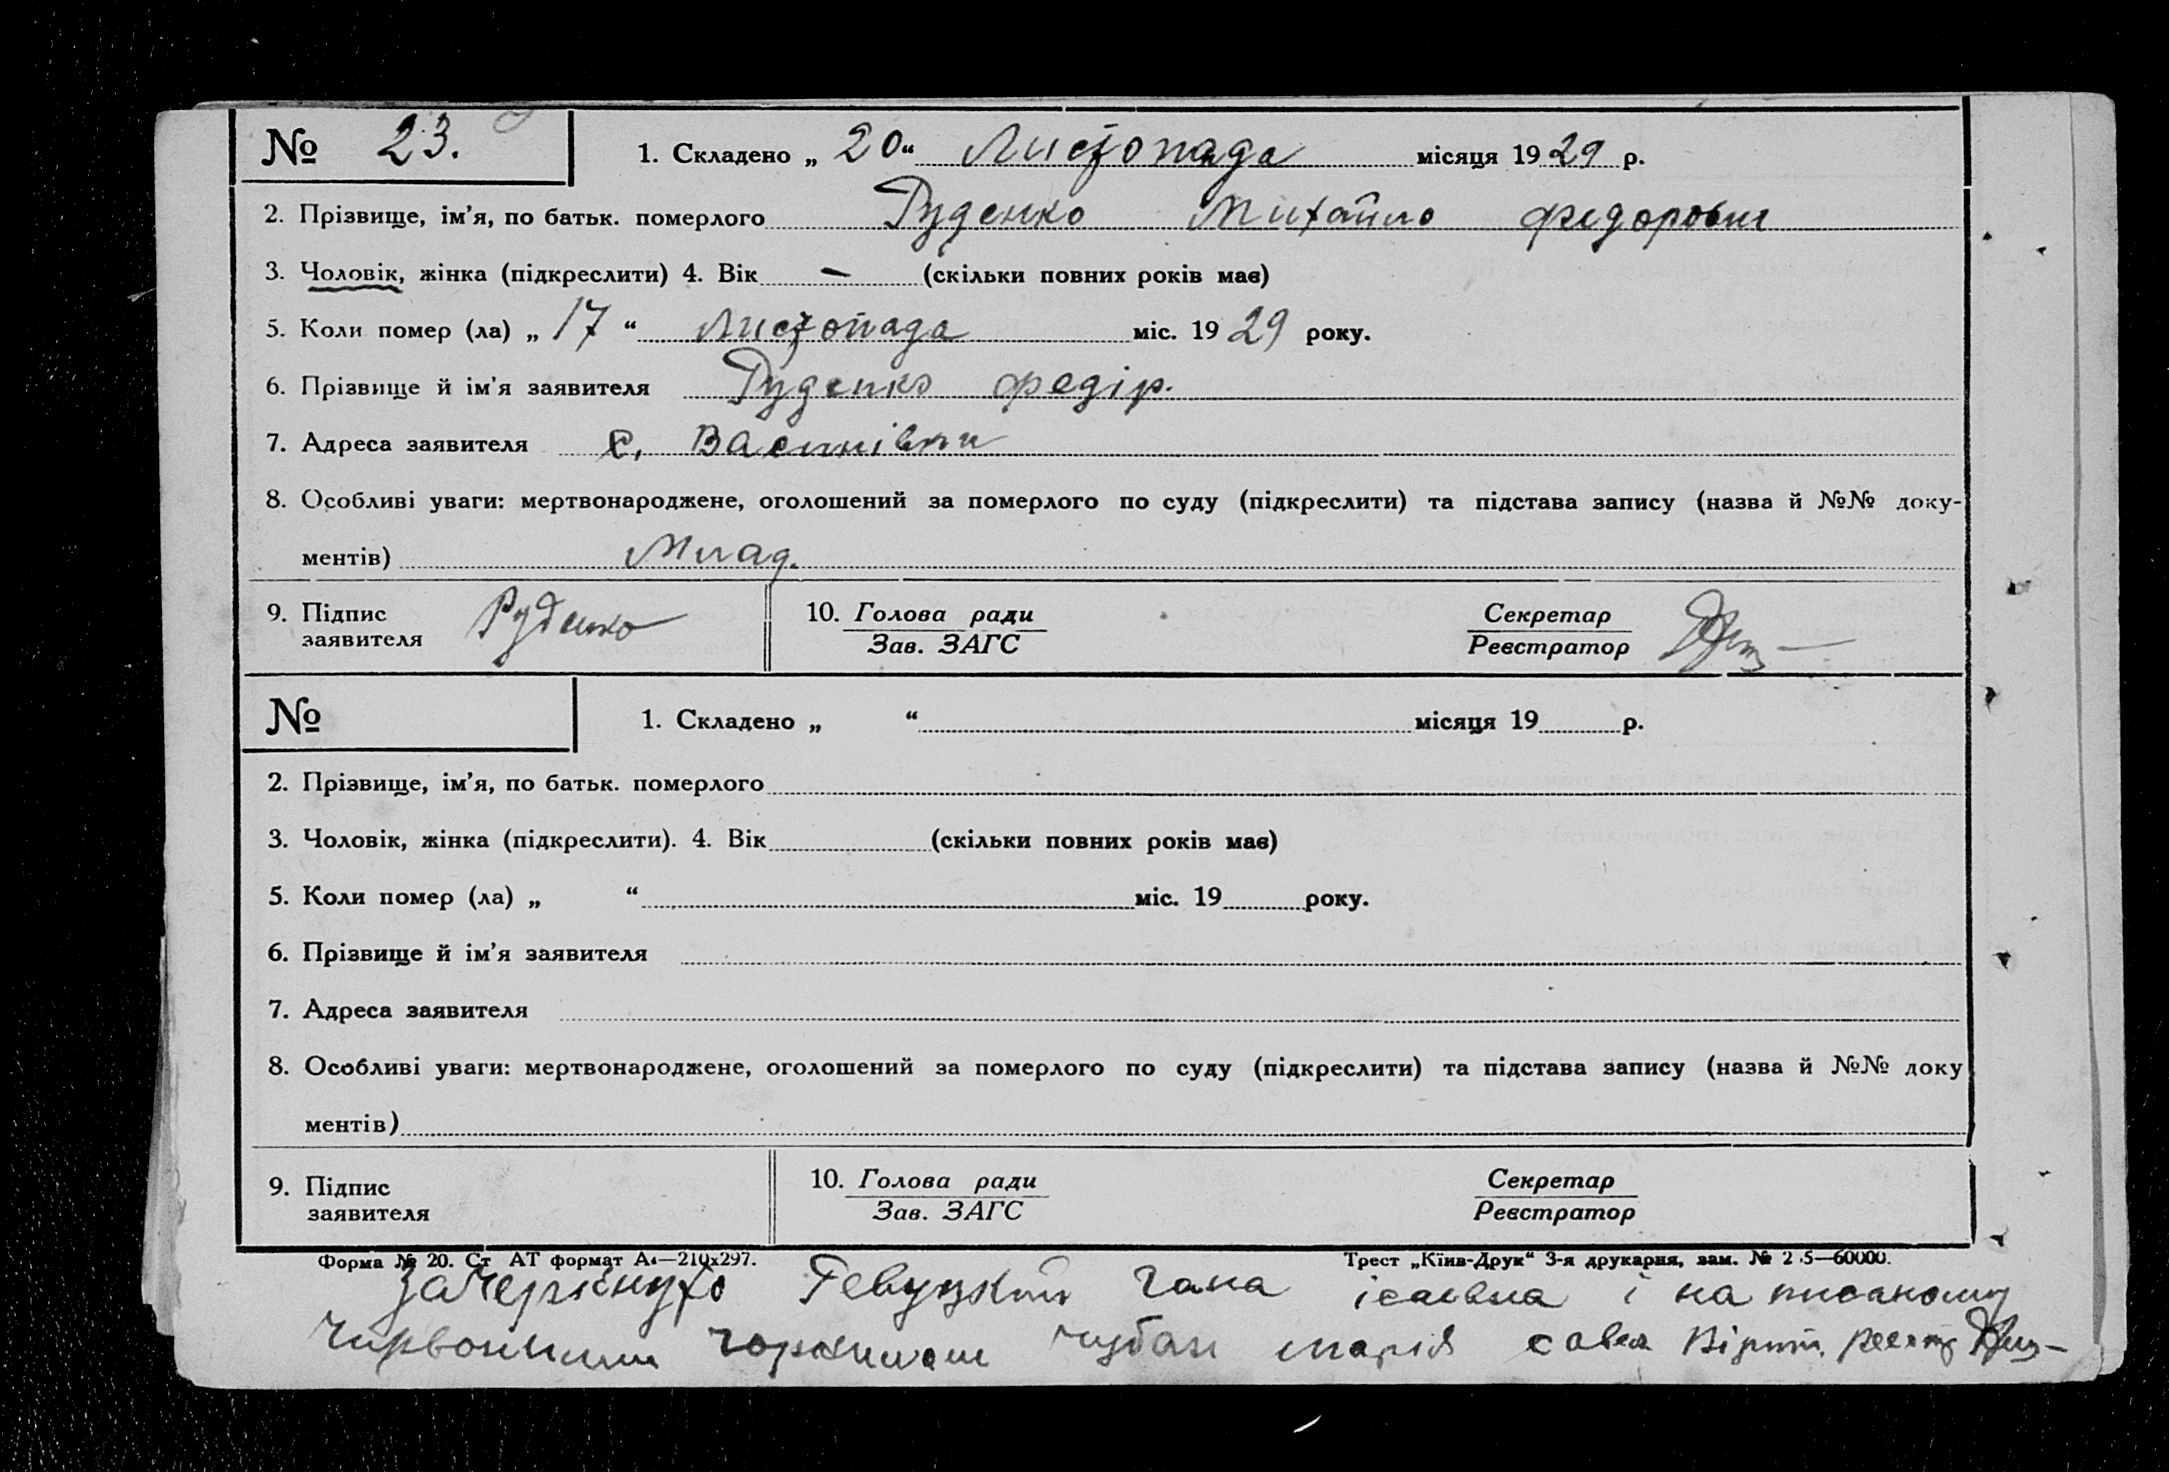 № 23. 1. Складено „ 20 “ Листопада місяця 1929 р.
2. Прізвище, ім’я, по батьк. померлого Руденко Михайло Федорович
3. Чоловік, жінка (підкреслити) 4. Вік — (скільки повних років має)
5. Коли помер (ла) „ 17 “ Листопада міс. 1929 року.
6. Прізвище й ім’я заявителя Руденко Федір.
7. Адреса заявителя с.
8. Особливі уваги: мертвонароджене, оголошений за померлого по суду (підкреслити) та підстава запису (назва й №№ доку-
ментів) Млад.
9. Підпис заявителя Руденко 10. Голова ради Секретар
Зав. ЗАГС Реєстратор
№ 1. Складено „ “ місяця 19 р.
2. Прізвище, ім’я, по батьк. померлого
3. Чоловік, жінка (підкреслити). 4. Вік (скільки повних років має)
5. Коли помер (ла) „ “ міс. 19 року.
6. Прізвище й ім’я заявителя
7. Адреса заявителя
8. Особливі уваги: мертвонароджене, оголошений за померлого по суду (підкреслити) та підстава запису (назва й №№ доку
ментів)
9. Підпис заявителя 10. Голова ради Секретар
Зав. ЗАГС Реєстратор
Форма № 20. Ст АТ формат А₄—210х297. Трест „Київ-Друк“ 3-я друкарня, зам. № 2 5—60000.
Зачеркнуто Гана і на писаному
Чирвоними чорнилам Чубан марія